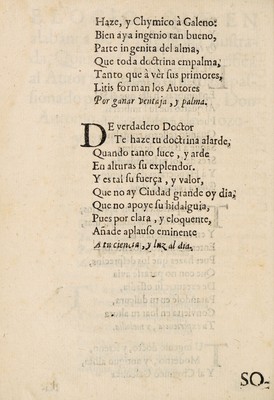 Haze, y Chymico à Galeno:
Bien aya ingenio tan bueno,
Parte ingenita del alma,
Que toda doctrina empalma,
Tanto que à vèr sus primores,
Litis forman los Autores
Por ganar ventaja, y palma.
DE verdadero Doctor
Te haze tu doctrina alarde,
Quando tanto luce, y arde
En alturas su explendor.
Y es tal su fuerça, y valor,
Que no ay Ciudad grande oy dia,
Que no apoye su hidalguia,
Pues por clara, y eloquente,
Añade aplauso eminente
A tu ciencia, y luz al dia.
SO-